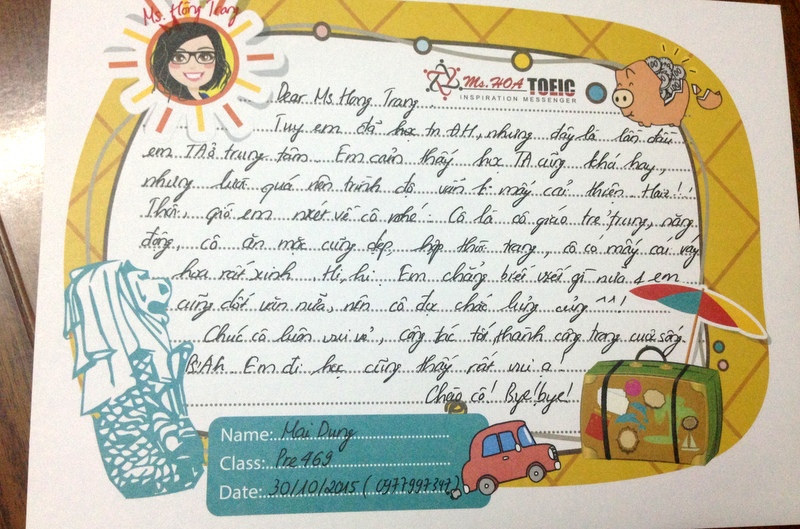 Ms. Hồng Trang
Ms. HOA TOEIC
INSPIRATION MESSENGER
Dear Ms Hong Trang
Tuy em đã học tn ĐH, nhưng đây là lần đầu
em TA ở trung tâm. Em cảm thấy học TA cũng khá hay,
nhưng lười quá nên trình độ vẫn k mấy cải thiện Haiz!!
Thôi, giờ em nhxét về cô nhé. Cô là cô giáo trẻ trung, năng
động, cô ăn mặc cũng đẹp, hợp thời trang, cô có mấy cái váy
hoa rất xinh. Hi, hi. Em chẳng biết viết gì nữa, em
cũng dốt văn nữa, nên cô đọc chắc lủng củng ^^!
Chúc cô luôn vui vẻ, công tác tốt, thành công trong cuộc sống
Em đi học cũng thấy rất vui ạ
Chào cô! Bye! bye!
Name: Mai Dung
Class: Pre 469
Date: 30/10/2015 (0977997347)